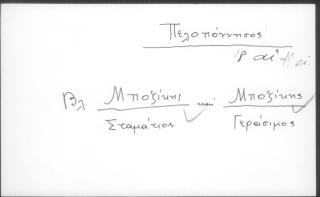 Πελοπόννησος
18 αἰ
Βλ. Μποζίκης καί Μποζίκης
Σταμάτιος Γεράσιμος